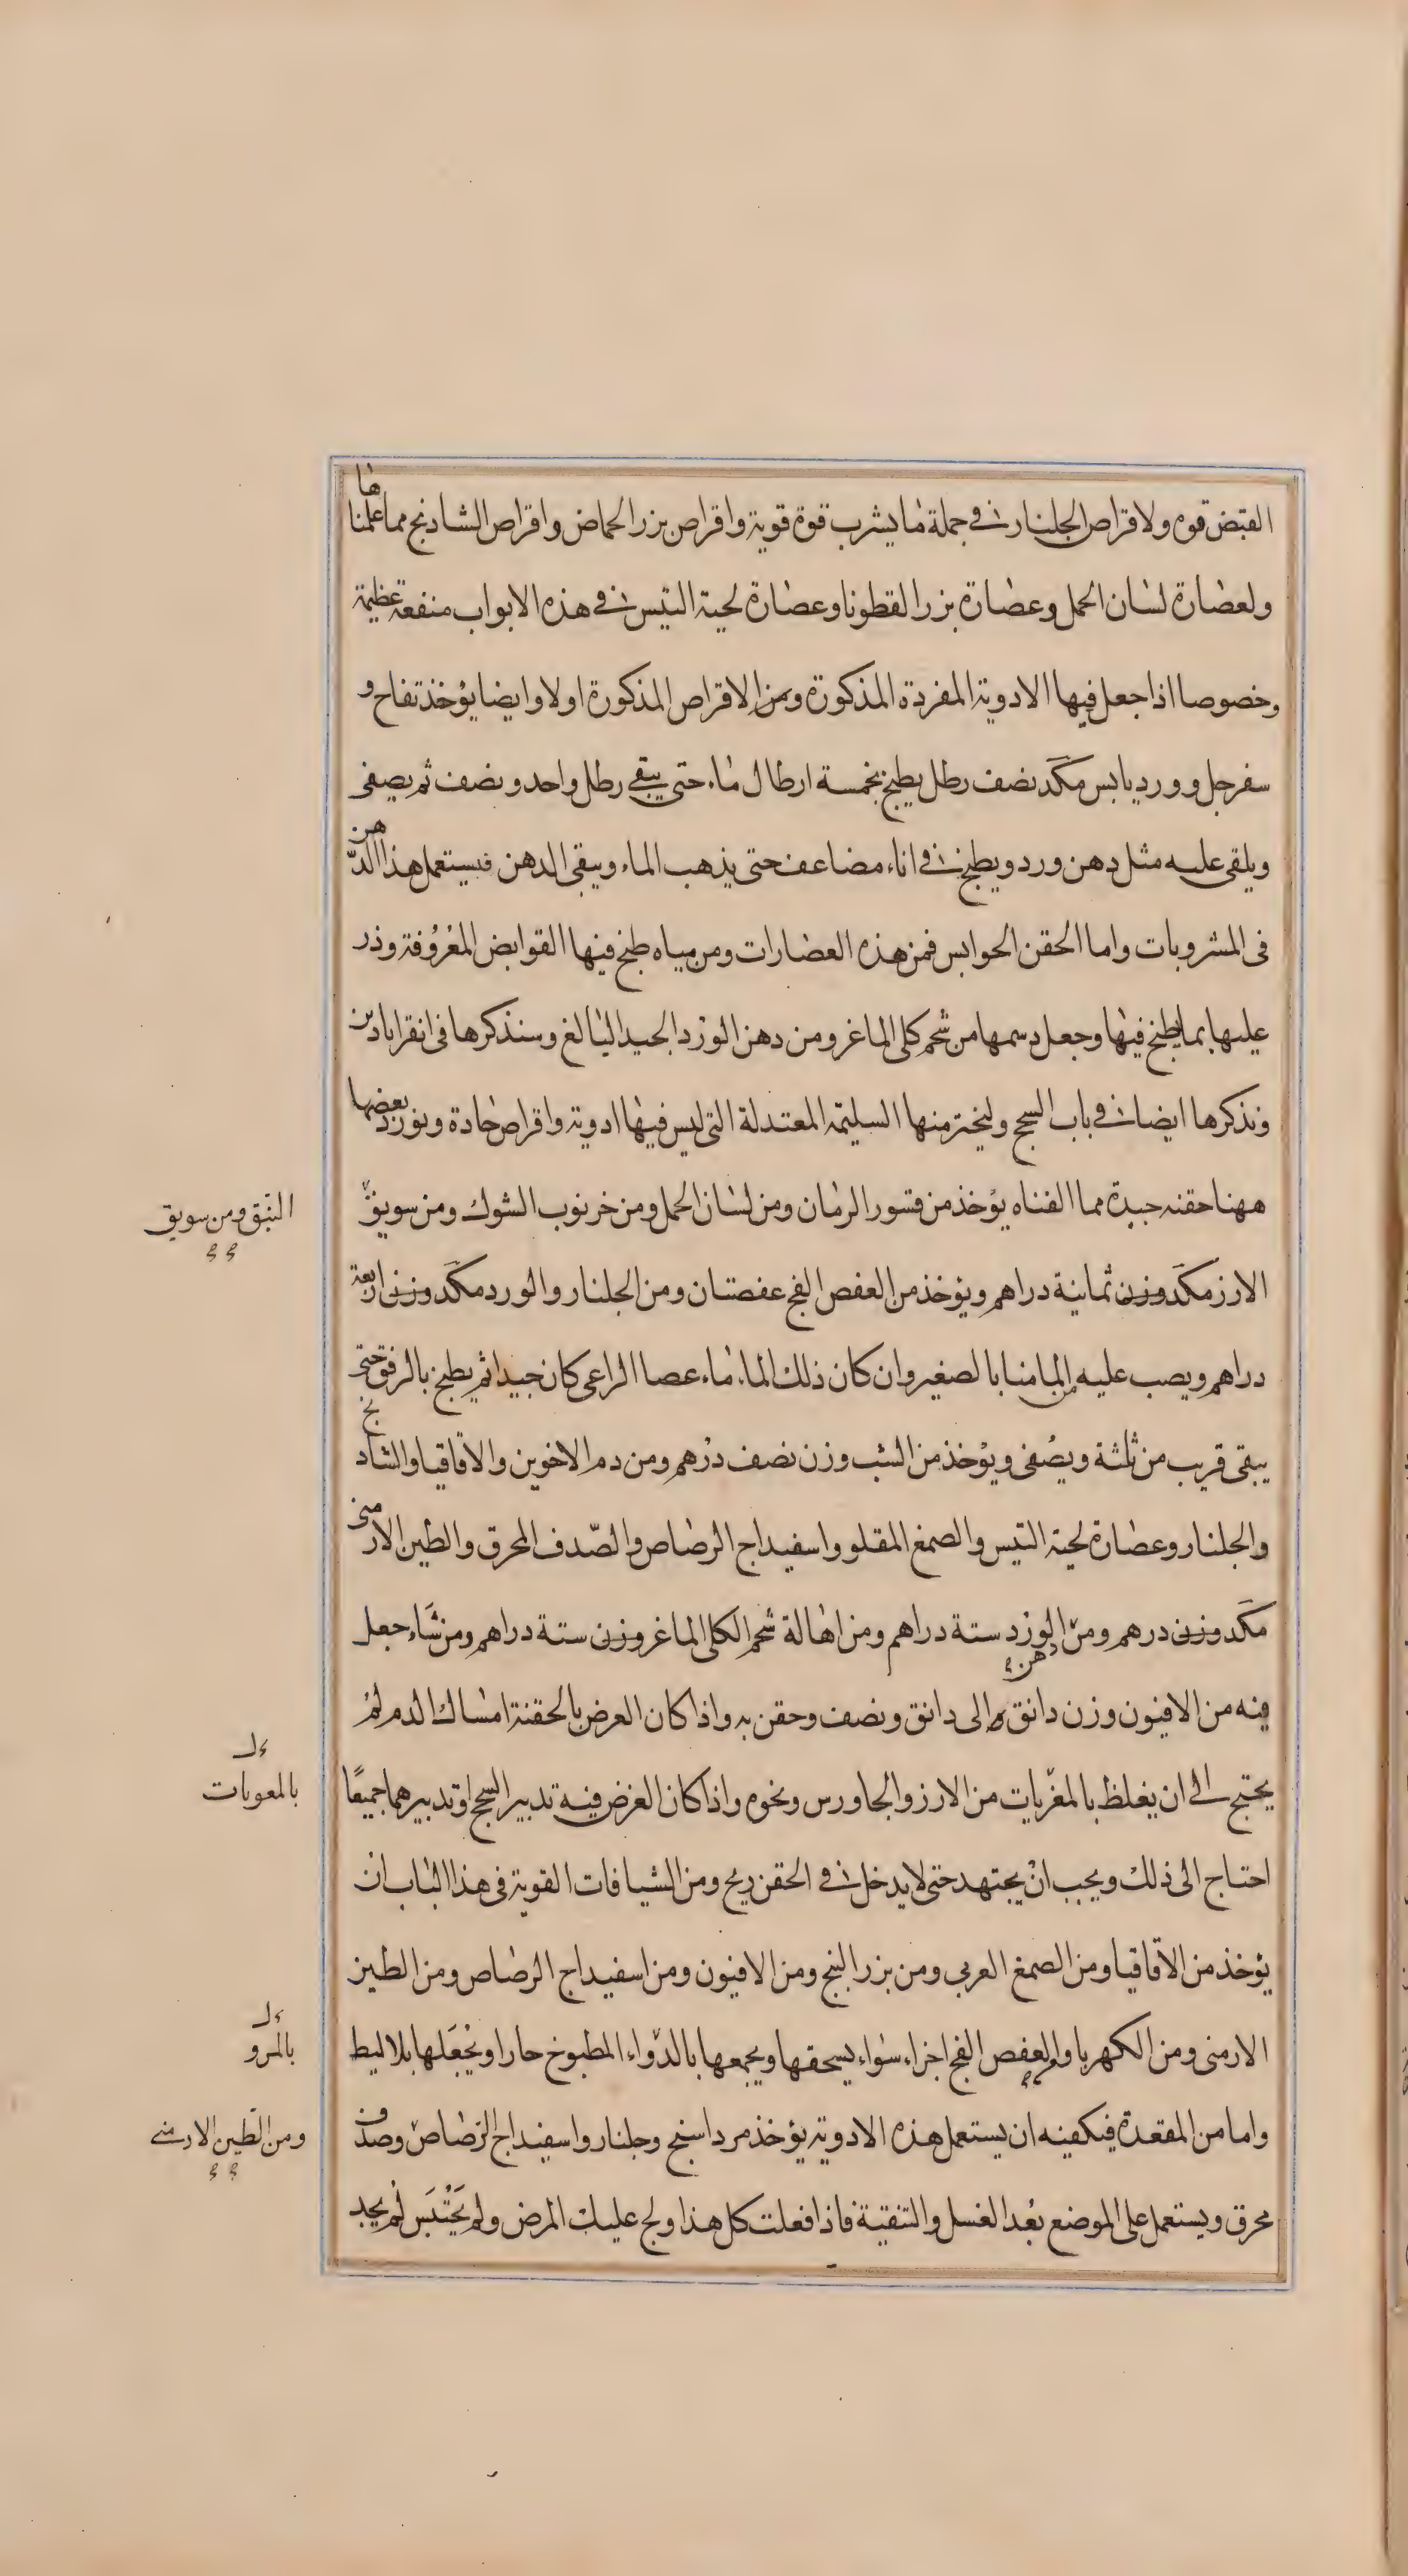 القبض قوه ولاقراص الجلنار فى جملة ما يشرب قوة قوية واقراص بزر الحماض واقراص الشادنج مما علمناها
ولعصارة لسان الحمل وعصارة بزر القطونا وعصارة لحية التيس فى هذه الابواب منفعة عظيمة
وخصوصا اذا جعل فيها الادوية المفردة المذكورة ومن الاقراص المذكورة اولا وايضا يؤخذ تفاح و
سفرجل وورد يابس مكد نصف رطل يطبخ بخمسة ارطال ماء حتى يبقى رطل واحد ونصف ثم يصفى
ويلقى عليه مثل دهن ورد ويطبخ فى اناء مضاعف حتى يذهب الماء ويبقى الدهن فيستعمل هذا الدهن
فى المشروبات واما الحقن الحوابس فمن هذه العصارات ومن مياه طبخ فيها القوابض المعروفة وذر
عليها بما يطبخ فيها وجعل دسمها من شحم كلى الماعز ومن دهن الورد الجيد البالغ وسنذكرها فى انقراباذين
ونذكرها ايضا فى باب السحج وليختر منها السليمة المعتدلة التى ليس فيها ادوية واقراص حادة ونورد بعضها
ههنا حقنه جيدة مما الفناه يؤخذ من قسور الرمان ومن لسان الحمل ومن خرنوب الشوك ومن سويق
النبق ومن سويق
الارز مكد وزن ثمانية دراهم ويؤخذ من العفص الفج عفصتان ومن الجلنار والورد مكد وزن اربعة
دراهم ويصب عليه من الماء منا بالصغير وان كان ذلك الماء ماء عصا الراعى كان جيدا ثم يطبخ بالرفق حتى
يبقى قريب من ثلثة ويصفى ويؤخذ من الشب وزن نصف درهم ومن دم الاخوين والاقاقيا والشادنج
والجلنار وعصارة لحية التيس والصمغ المقلو واسفيداج الرصاص والصدف المحرق والطين الارمنى
مكد وزن درهم ومن دهن الورد ستة دراهم ومن اهالة شحم الكلى الماعز وزن ستة دراهم ومن شاء جعل
فيه من الافيون وزن دانق الى دانق ونصف وحقن به واذا كان العرض بالحقنة امساك الدم لم
يحتج الى ان يغلظ بالمغريات من الارز والجاورس ونحوه واذا كان الغرض فيه تدبير السحج او تدبيرهما جميعا
بالمعويات
احتاج الى ذلك ويجب ان يجتهد حتى لا يدخل فى الحقن ريح ومن الشيافات القوية فى هذا الباب ان
يؤخذ من الاقاقيا ومن الصمغ العربى ومن بزر البنج ومن الافيون ومن اسفيداج الرصاص ومن الطين
الارمنى ومن الكهربا والعفص الفج اجزاء سواء يسحقها ويجمعها بالدواء المطبوخ حارا ويجعلها بلاليط
بالمرو
واما من المقعدة فيكفيه ان يستعمل هذه الادوية يؤخذ مرداسنج وجلنار واسفيداج الرصاص وصدف
ومن الطين الارمنى
محرق ويستعمل على الموضع بعد الغسل والتنقية فاذا فعلت كل هذا ولج عليك المرض ولم يحتبس لم يجد